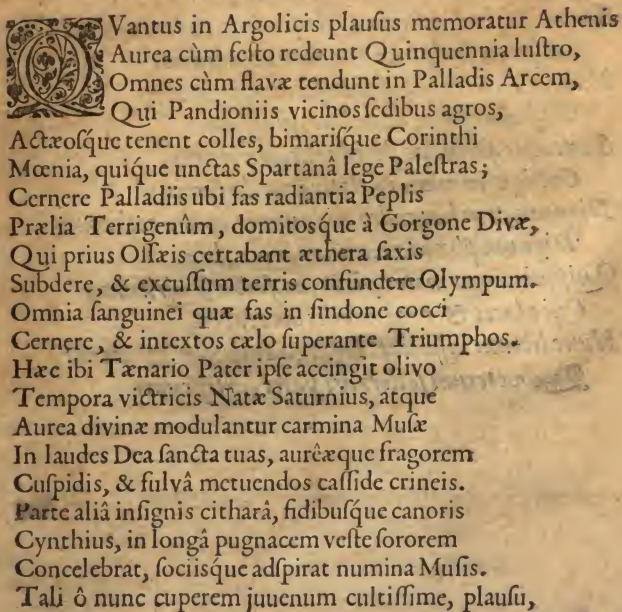 QVantus in Argolicis plauſus memoratur Athenis
Aurea cùm feſto redeunt Quinquennia luſtro,
Omnes cùm flavæ tendunt in Palladis Arcem,
Qui Pandioniis vicinos ſedibus agros,
Actæoſq́ue tenent colles, bimariſq́ue Corinthi
Mœnia, quique unctas Spartanâ lege Paleſtras;
Cernere Palladiis ubi fas radiantia Peplis
Prælia Terrigenûm, domitosq́ue à Gorgone Divæ,
Qui prius Oſſæis certabant æthera ſaxis
Subdere, & excuſſum terris confundere Olympum.
Omnia ſanguinei quæ fas in ſindone cocci
Cernere, & intextos cælo ſuperante Triumphos.
Hæc ibi Tænario Pater ipſe accingit olivo
Tempora victricis Natæ Saturnius, atque
Aurea divinæ modulantur carmina Muſæ
In laudes Dea ſancta tuas, aurêæque fragorem
Cuſpidis, & fulvâ metuendos caſſide crineis.
Parte aliâ inſignis citharâ, fidibuſque canoris
Cynthius, in longâ pugnacem veſte ſororem
Concelebrat, ſociisque adſpirat numina Muſis.
Tali ô nunc cuperem juuenum cultiſſime, plauſu,